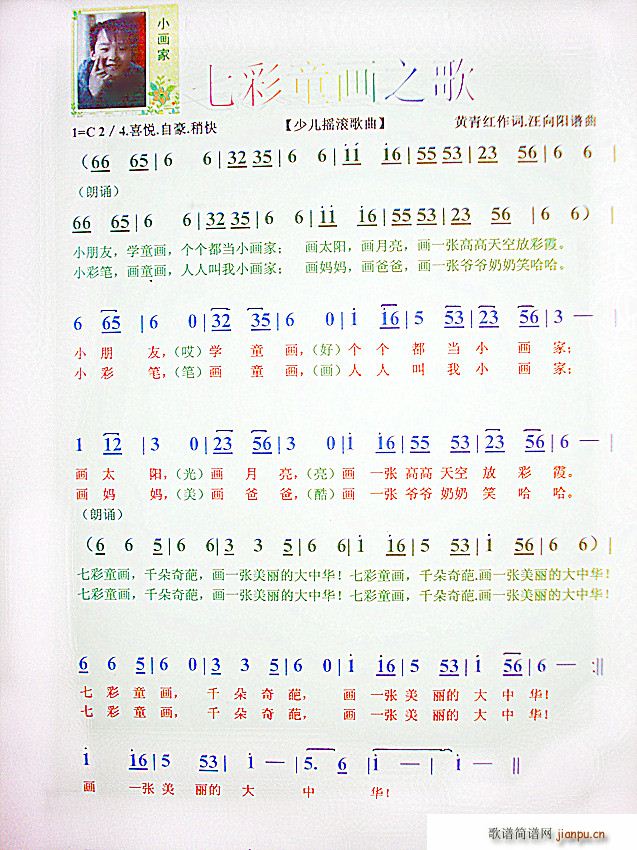 小画家
七彩童画之歌
1=C 2/4.喜悦.自豪.稍快 【少儿摇滚歌曲】 黄青红作词.汪向阳谱曲
(66 65 | 6 6 | 32 35 | 6 6 | i i i6 | 55 53 | 23 56 | 6 6 |
(朗诵)
66 65 | 6 6 | 32 35 | 6 6 | i i i6 | 55 53 | 23 56 | 6 6) |
小朋友，学童画，个个都当小画家； 画太阳，画月亮，画一张高高天空放彩霞。
小彩笔，画童画，人人叫我小画家； 画妈妈，画爸爸，画一张爷爷奶奶笑哈哈。
6 65 | 6 0 | 32 35 | 6 0 | i i6 | 5 53 | 23 56 | 3 — |
小 朋 友，(哎)学 童 画，(好)个 个 都 当 小 画 家；
小 彩 笔，(笔)画 童 画，(画)人 人 叫 我 小 画 家；
1 12 | 3 0 | 23 56 | 3 0 | i i6 | 55 53 | 23 56 | 6 — |
画 太 阳，(光)画 月 亮，(亮)画 一张 高高 天空 放 彩 霞。
画 妈 妈，(美)画 爸 爸，(酷)画 一张 爷爷 奶奶 笑 哈 哈。
(朗诵)
(6 6 5 | 6 6 | 3 3 5 | 6 6 | i i6 | 5 53 | i 56 | 6 6) |
七彩童画，千朵奇葩，画一张美丽的大中华！七彩童画，千朵奇葩.画一张美丽的大中华！
七彩童画，千朵奇葩，画一张美丽的大中华！七彩童画，千朵奇葩.画一张美丽的大中华！
6 6 5 | 6 0 | 3 3 5 | 6 0 | i i6 | 5 53 | i 56 | 6 — :||
七 彩 童 画， 千 朵 奇 葩， 画 一张 美 丽的 大 中 华！
七 彩 童 画， 千 朵 奇 葩， 画 一张 美 丽的 大 中 华！
i i6 | 5 53 | i — | 5. 6 | i — | i — ||
画 一张 美 丽的 大 中 华！
歌谱简谱网 jianpu.cn